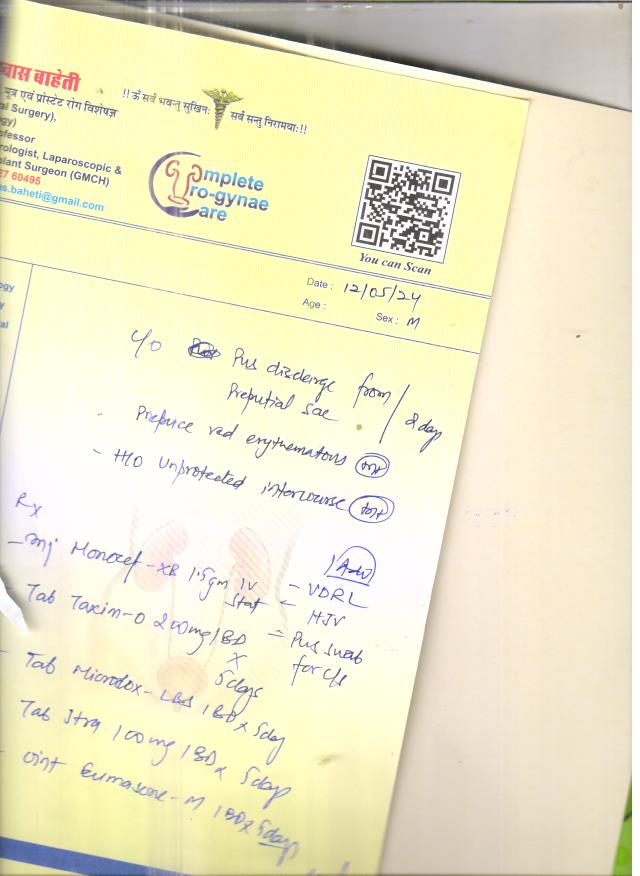 वास बाहेती
मूत्र एवं प्रोस्टेट रोग विशेषज्ञ
al Surgery),
gy)
ofessor
rologist, Laparoscopic &
plant Surgeon (GMCH)
27 60495
s.baheti@gmail.com
!! ॐ सर्वे भवन्तु सुखिनः
सर्वे सन्तु निरामयाः !!
Complete
Uro-gynae
Care
You can Scan
Date : 12/05/24
Age :
Sex : M
ogy
y
al
c/o Pus discharge from
Preputial sac / 2 day
- Prepuce red erythematous
- H/O Unprotected intercourse
Rx
- Inj Monocef-XB 1.5gm IV
Stat
Adv
- VDRL
- HIV
- Pus swab
for c/s
Tab Taxim-O 200mg 1BD
x
5days
- Tab Microdox-LBX 1BD x 5day
Tab Itra 100mg 1BD x 5day
- Oint Eumasone-M 1BD x 5day